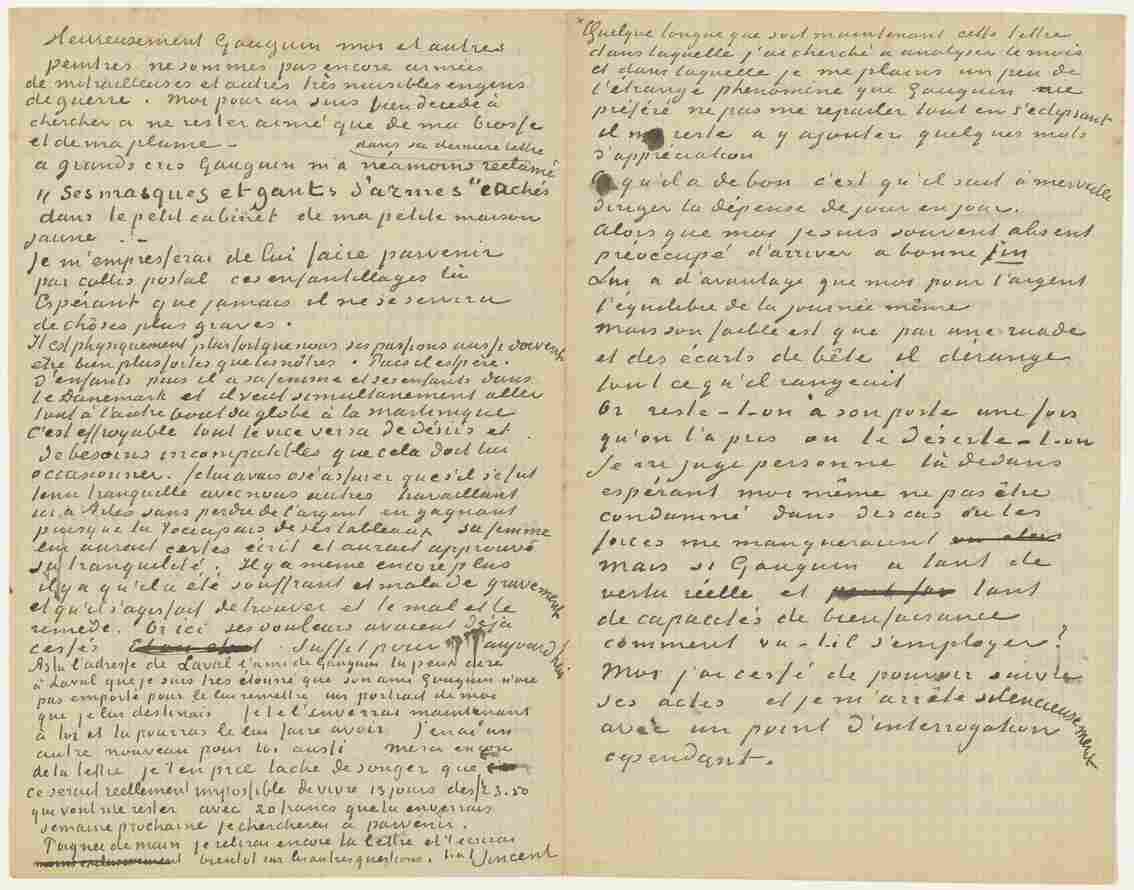 Heureusement Gauguin moi et autres
peintres ne sommes pas encore armés
de mitrailleuses et autres très nuisibles engins
de guerre. Moi pour un suis bien décidé à
chercher a ne rester armé que de ma brosse
et de ma plume –
dans sa dernière lettre
a grands cris Gauguin m'a néamoins réclamé
„ses masques et gants d'armes" cachés
dans le petit cabinet de ma petite maison
jaune. –
Je m'empresserai de lui faire parvenir
par collis postal ces enfantillages là
Espérant que jamais il ne se servira
de chôses plus graves.
Il est physiquement plus fort que nous ses passions aussi doivent
etre bien plus fortes que les nôtres. Puis il est père
d'enfants puis il a sa femme et ses enfants dans
le Danemark et il veut simultanement aller
tout à l'autre bout du globe à la Martinique
C'est effroyable tout le vice versa de désirs et
de besoins incompatibles que cela doit lui
occasionner. Je lui avais osé assurer que s'il se fut
tenu tranquille avec nous autres travaillant
ici à Arles sans perdre de l'argent en gagnant
puisque tu t'occupais de ses tableaux sa femme
lui aurait certes écrit et aurait approuvé
sa tranquilité. Il y a meme encore plus
il y a qu'il a été souffrant et malade gravement
et qu'il s'agissait de trouver et le mal et le
remède. Or ici ses douleurs avaient déjà
cessés. Suffit pour aujourd'hui
As tu l'adresse de Laval l'ami de Gauguin tu peux dire
à Laval que je suis très étonné que son ami Gauguin n'aie
pas emporté pour le lui remettre un portrait de moi
que je lui destinais. Je te l'enverrai maintenant
à toi et tu pourras le lui faire avoir. J'en ai un
autre nouveau pour toi aussi merci encore
de ta lettre je t'en prie tache de songer que
ce serait reellement impossible de vivre 13 jours des f 23.50
qui vont me rester avec 20 francs que tu enverrais
semaine prochaine je chercherai à parvenir.
Poignee de main je relirai encore ta lettre et t'ecrirai
bientot sur les autres questions. t. à t. Vincent
Quelque longue que soit maintenant cette lettre
dans laquelle j'ai cherché a analyser le mois
et dans laquelle je me plains un peu de
l'étrange phénomène que Gauguin aie
préféré ne pas me reparler tout en s'éclipsant
il me reste a y ajouter quelques mots
d'appréciation
Ce qu'il a de bon c'est qu'il sait à merveille
diriger la dépense de jour en jour.
Alors que moi je suis souvent absent
préoccupé d'arriver a bonne fin
Lui a d'avantage que moi pour l'argent
l'équilibre de la journée même
Mais son faible est que par une ruade
et des écarts de bête il dérange
tout ce qu'il rangeait
Or reste-t-on à son poste une fois
qu'on l'a pris ou le déserte-t-on
Je ne juge personne là dedans
espérant moi même ne pas être
condamné dans des cas ou les
forces me manqueraient
Mais si Gauguin a tant de
vertu réelle et tant
de capacités de bienfaisance
comment va-t-il s'employer?
Moi j'ai cessé de pouvoir suivre
ses actes et je m'arrête silencieusement
avec un point d'interrogation
cependant.